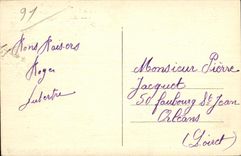 91
Bons Baisers
Roger
Monsieur Pierre
Jacquet
50 faubourg St Jean
Orléans
(Loiret)